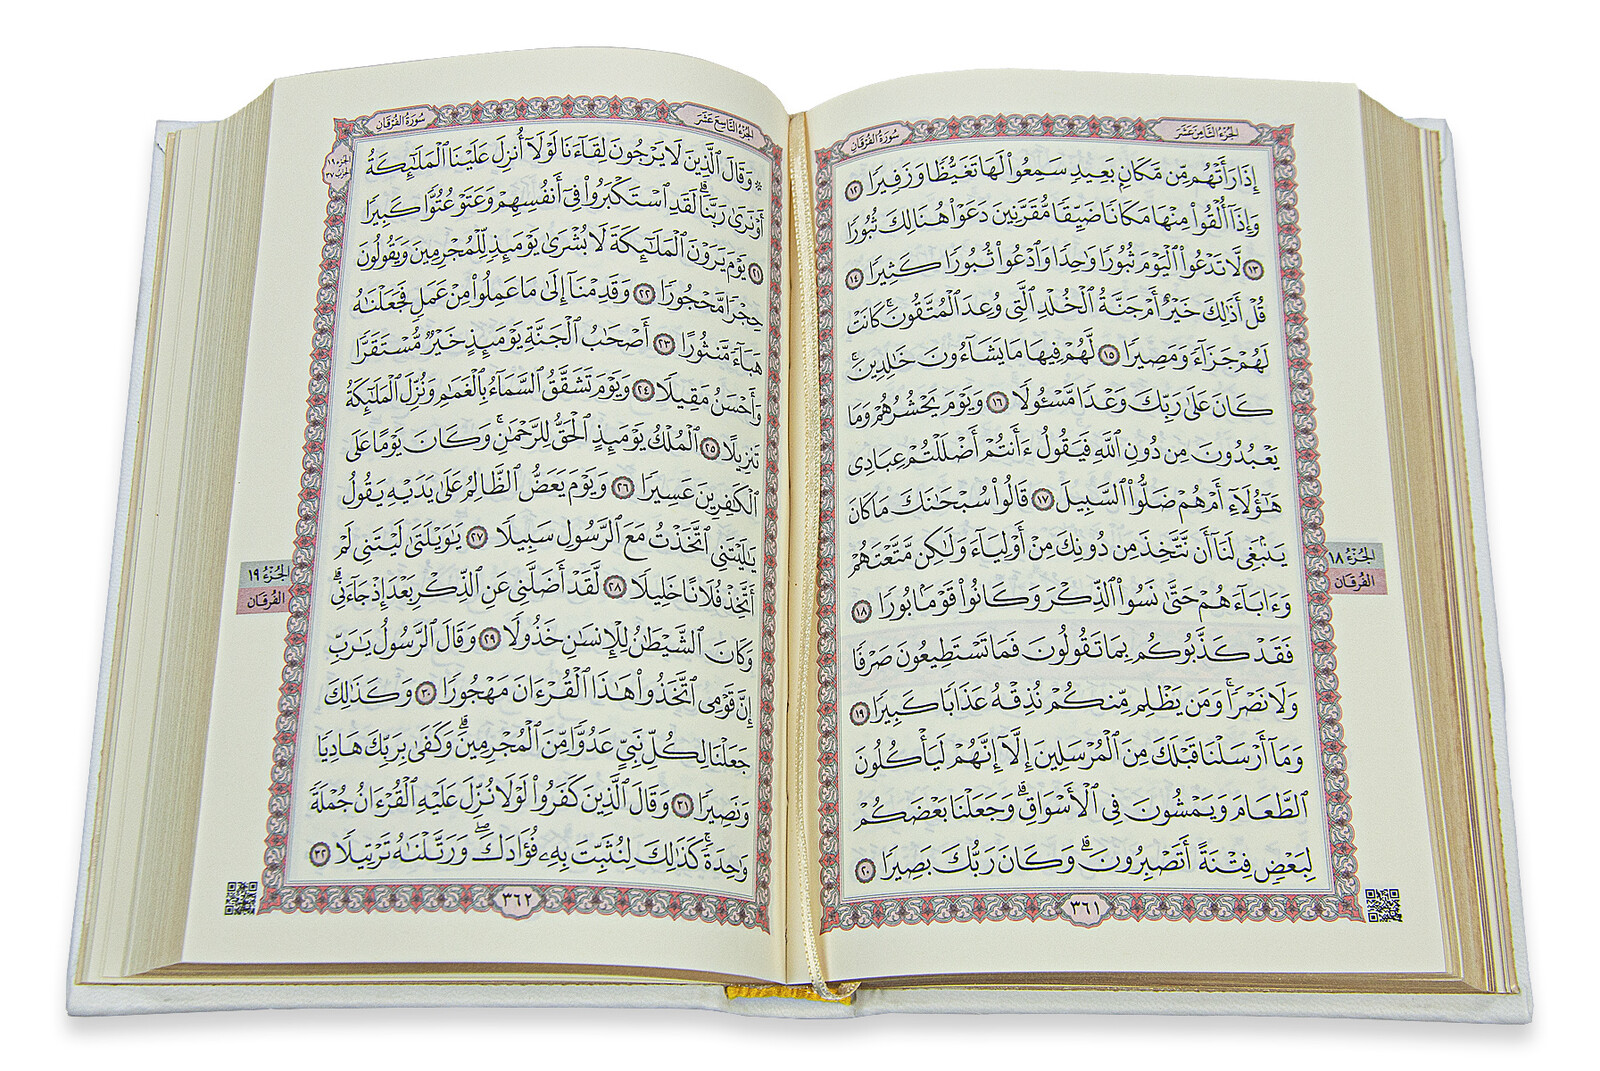 سُورَةُ الفُرْقَانِ
الجُزْءُ الثَّامِنَ عَشَرَ
إِذَا رَأَتْهُم مِّن مَّكَانٍۭ بَعِيدٍ سَمِعُوا۟ لَهَا تَغَيُّظًا وَزَفِيرًا ١٢
وَإِذَآ أُلْقُوا۟ مِنْهَا مَكَانًا ضَيِّقًا مُّقَرَّنِينَ دَعَوْا۟ هُنَالِكَ ثُبُورًا
١٣ لَّا تَدْعُوا۟ ٱلْيَوْمَ ثُبُورًا وَٰحِدًا وَٱدْعُوا۟ ثُبُورًا كَثِيرًا ١٤
قُلْ أَذَٰلِكَ خَيْرٌ أَمْ جَنَّةُ ٱلْخُلْدِ ٱلَّتِى وُعِدَ ٱلْمُتَّقُونَ ۚ كَانَتْ
لَهُمْ جَزَآءً وَمَصِيرًا ١٥ لَّهُمْ فِيهَا مَا يَشَآءُونَ خَٰلِدِينَ ۚ
كَانَ عَلَىٰ رَبِّكَ وَعْدًا مَّسْـُٔولًا ١٦ وَيَوْمَ يَحْشُرُهُمْ وَمَا
يَعْبُدُونَ مِن دُونِ ٱللَّهِ فَيَقُولُ ءَأَنتُمْ أَضْلَلْتُمْ عِبَادِى
هَٰٓؤُلَآءِ أَمْ هُمْ ضَلُّوا۟ ٱلسَّبِيلَ ١٧ قَالُوا۟ سُبْحَٰنَكَ مَا كَانَ
يَنۢبَغِى لَنَآ أَن نَّتَّخِذَ مِن دُونِكَ مِنْ أَوْلِيَآءَ وَلَٰكِن مَّتَّعْتَهُمْ
وَءَابَآءَهُمْ حَتَّىٰ نَسُوا۟ ٱلذِّكْرَ وَكَانُوا۟ قَوْمًۢا بُورًا ١٨
فَقَدْ كَذَّبُوكُم بِمَا تَقُولُونَ فَمَا تَسْتَطِيعُونَ صَرْفًا
وَلَا نَصْرًا ۚ وَمَن يَظْلِم مِّنكُمْ نُذِقْهُ عَذَابًا كَبِيرًا ١٩
وَمَآ أَرْسَلْنَا قَبْلَكَ مِنَ ٱلْمُرْسَلِينَ إِلَّآ إِنَّهُمْ لَيَأْكُلُونَ
ٱلطَّعَامَ وَيَمْشُونَ فِى ٱلْأَسْوَاقِ ۗ وَجَعَلْنَا بَعْضَكُمْ
لِبَعْضٍ فِتْنَةً أَتَصْبِرُونَ ۗ وَكَانَ رَبُّكَ بَصِيرًا ٢٠
الجُزْءُ ١٨
الفُرْقَان
٣٦١
الجُزْءُ التَّاسِعَ عَشَرَ
سُورَةُ الفُرْقَانِ
الجزء ١٩
الحزب ٣٧
۞ وَقَالَ ٱلَّذِينَ لَا يَرْجُونَ لِقَآءَنَا لَوْلَآ أُنزِلَ عَلَيْنَا ٱلْمَلَٰٓئِكَةُ
أَوْ نَرَىٰ رَبَّنَا ۗ لَقَدِ ٱسْتَكْبَرُوا۟ فِىٓ أَنفُسِهِمْ وَعَتَوْ عُتُوًّا كَبِيرًا
٢١ يَوْمَ يَرَوْنَ ٱلْمَلَٰٓئِكَةَ لَا بُشْرَىٰ يَوْمَئِذٍ لِّلْمُجْرِمِينَ وَيَقُولُونَ
حِجْرًا مَّحْجُورًا ٢٢ وَقَدِمْنَآ إِلَىٰ مَا عَمِلُوا۟ مِنْ عَمَلٍ فَجَعَلْنَٰهُ
هَبَآءً مَّنثُورًا ٢٣ أَصْحَٰبُ ٱلْجَنَّةِ يَوْمَئِذٍ خَيْرٌ مُّسْتَقَرًّا
وَأَحْسَنُ مَقِيلًا ٢٤ وَيَوْمَ تَشَقَّقُ ٱلسَّمَآءُ بِٱلْغَمَٰمِ وَنُزِّلَ ٱلْمَلَٰٓئِكَةُ
تَنزِيلًا ٢٥ ٱلْمُلْكُ يَوْمَئِذٍ ٱلْحَقُّ لِلرَّحْمَٰنِ ۚ وَكَانَ يَوْمًا عَلَى
ٱلْكَٰفِرِينَ عَسِيرًا ٢٦ وَيَوْمَ يَعَضُّ ٱلظَّالِمُ عَلَىٰ يَدَيْهِ يَقُولُ
يَٰلَيْتَنِى ٱتَّخَذْتُ مَعَ ٱلرَّسُولِ سَبِيلًا ٢٧ يَٰوَيْلَتَىٰ لَيْتَنِى لَمْ
أَتَّخِذْ فُلَانًا خَلِيلًا ٢٨ لَّقَدْ أَضَلَّنِى عَنِ ٱلذِّكْرِ بَعْدَ إِذْ جَآءَنِى ۗ
وَكَانَ ٱلشَّيْطَٰنُ لِلْإِنسَٰنِ خَذُولًا ٢٩ وَقَالَ ٱلرَّسُولُ يَٰرَبِّ
إِنَّ قَوْمِى ٱتَّخَذُوا۟ هَٰذَا ٱلْقُرْءَانَ مَهْجُورًا ٣٠ وَكَذَٰلِكَ
جَعَلْنَا لِكُلِّ نَبِىٍّ عَدُوًّا مِّنَ ٱلْمُجْرِمِينَ ۗ وَكَفَىٰ بِرَبِّكَ هَادِيًا
وَنَصِيرًا ٣١ وَقَالَ ٱلَّذِينَ كَفَرُوا۟ لَوْلَا نُزِّلَ عَلَيْهِ ٱلْقُرْءَانُ جُمْلَةً
وَٰحِدَةً ۚ كَذَٰلِكَ لِنُثَبِّتَ بِهِۦ فُؤَادَكَ ۖ وَرَتَّلْنَٰهُ تَرْتِيلًا ٣٢
الجُزْءُ ١٩
الفُرْقَان
٣٦٢